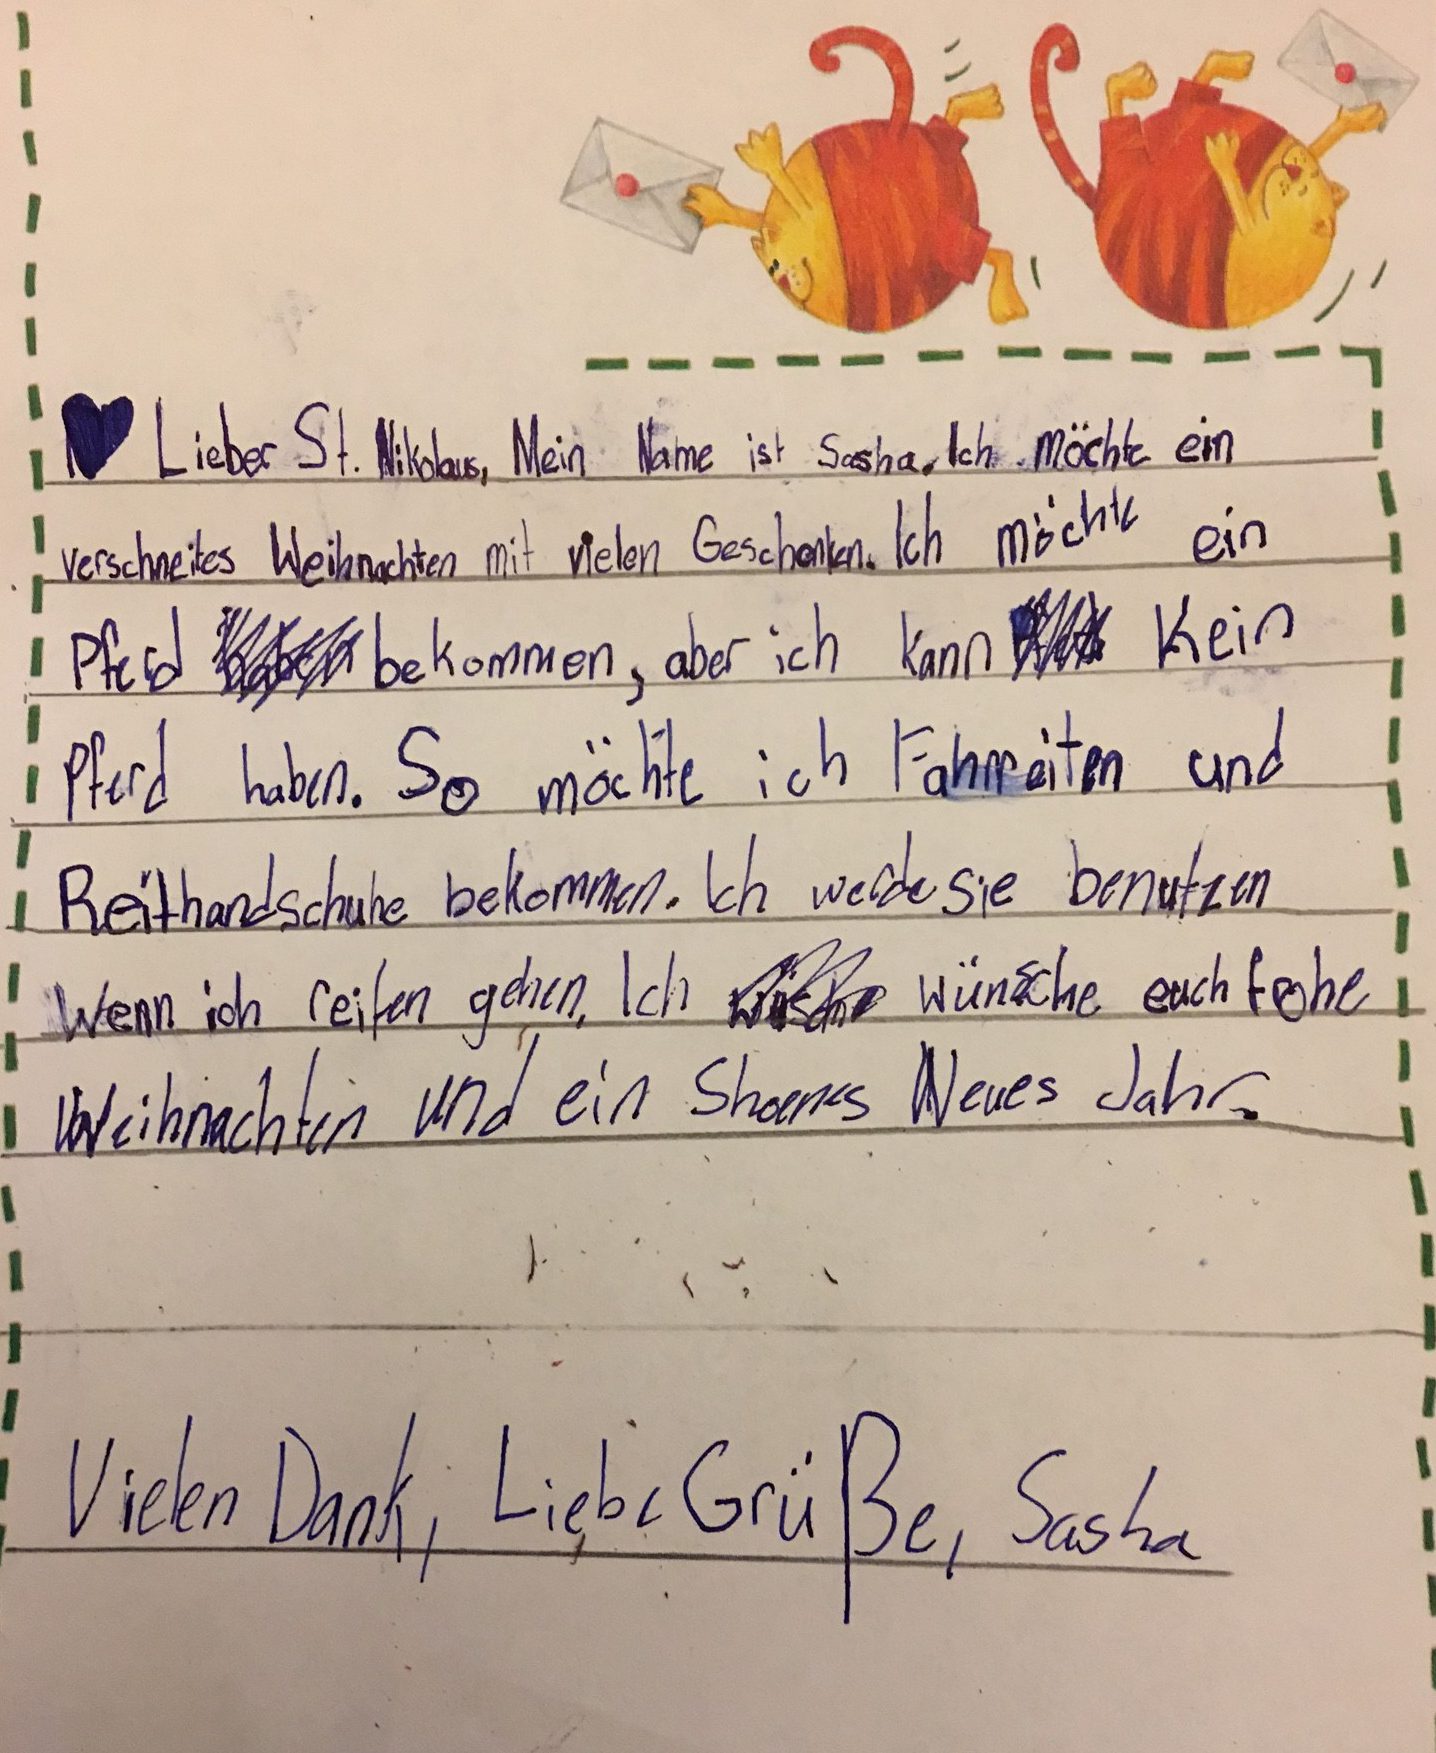 Lieber St. Nikolaus, Mein Name ist Sasha. Ich möchte ein
verschneites Weihnachten mit vielen Geschenken. Ich möchte ein
Pferd bekommen, aber ich kann kein
Pferd haben. So möchte ich Fahrreiten und
Reithandschuhe bekommen. Ich werde sie benutzen
Wenn ich reiten gehen. Ich wünsche euch frohe
Weihnachten und ein Shoenes Neues Jahr.
Vielen Dank, Liebe Grüße, Sasha